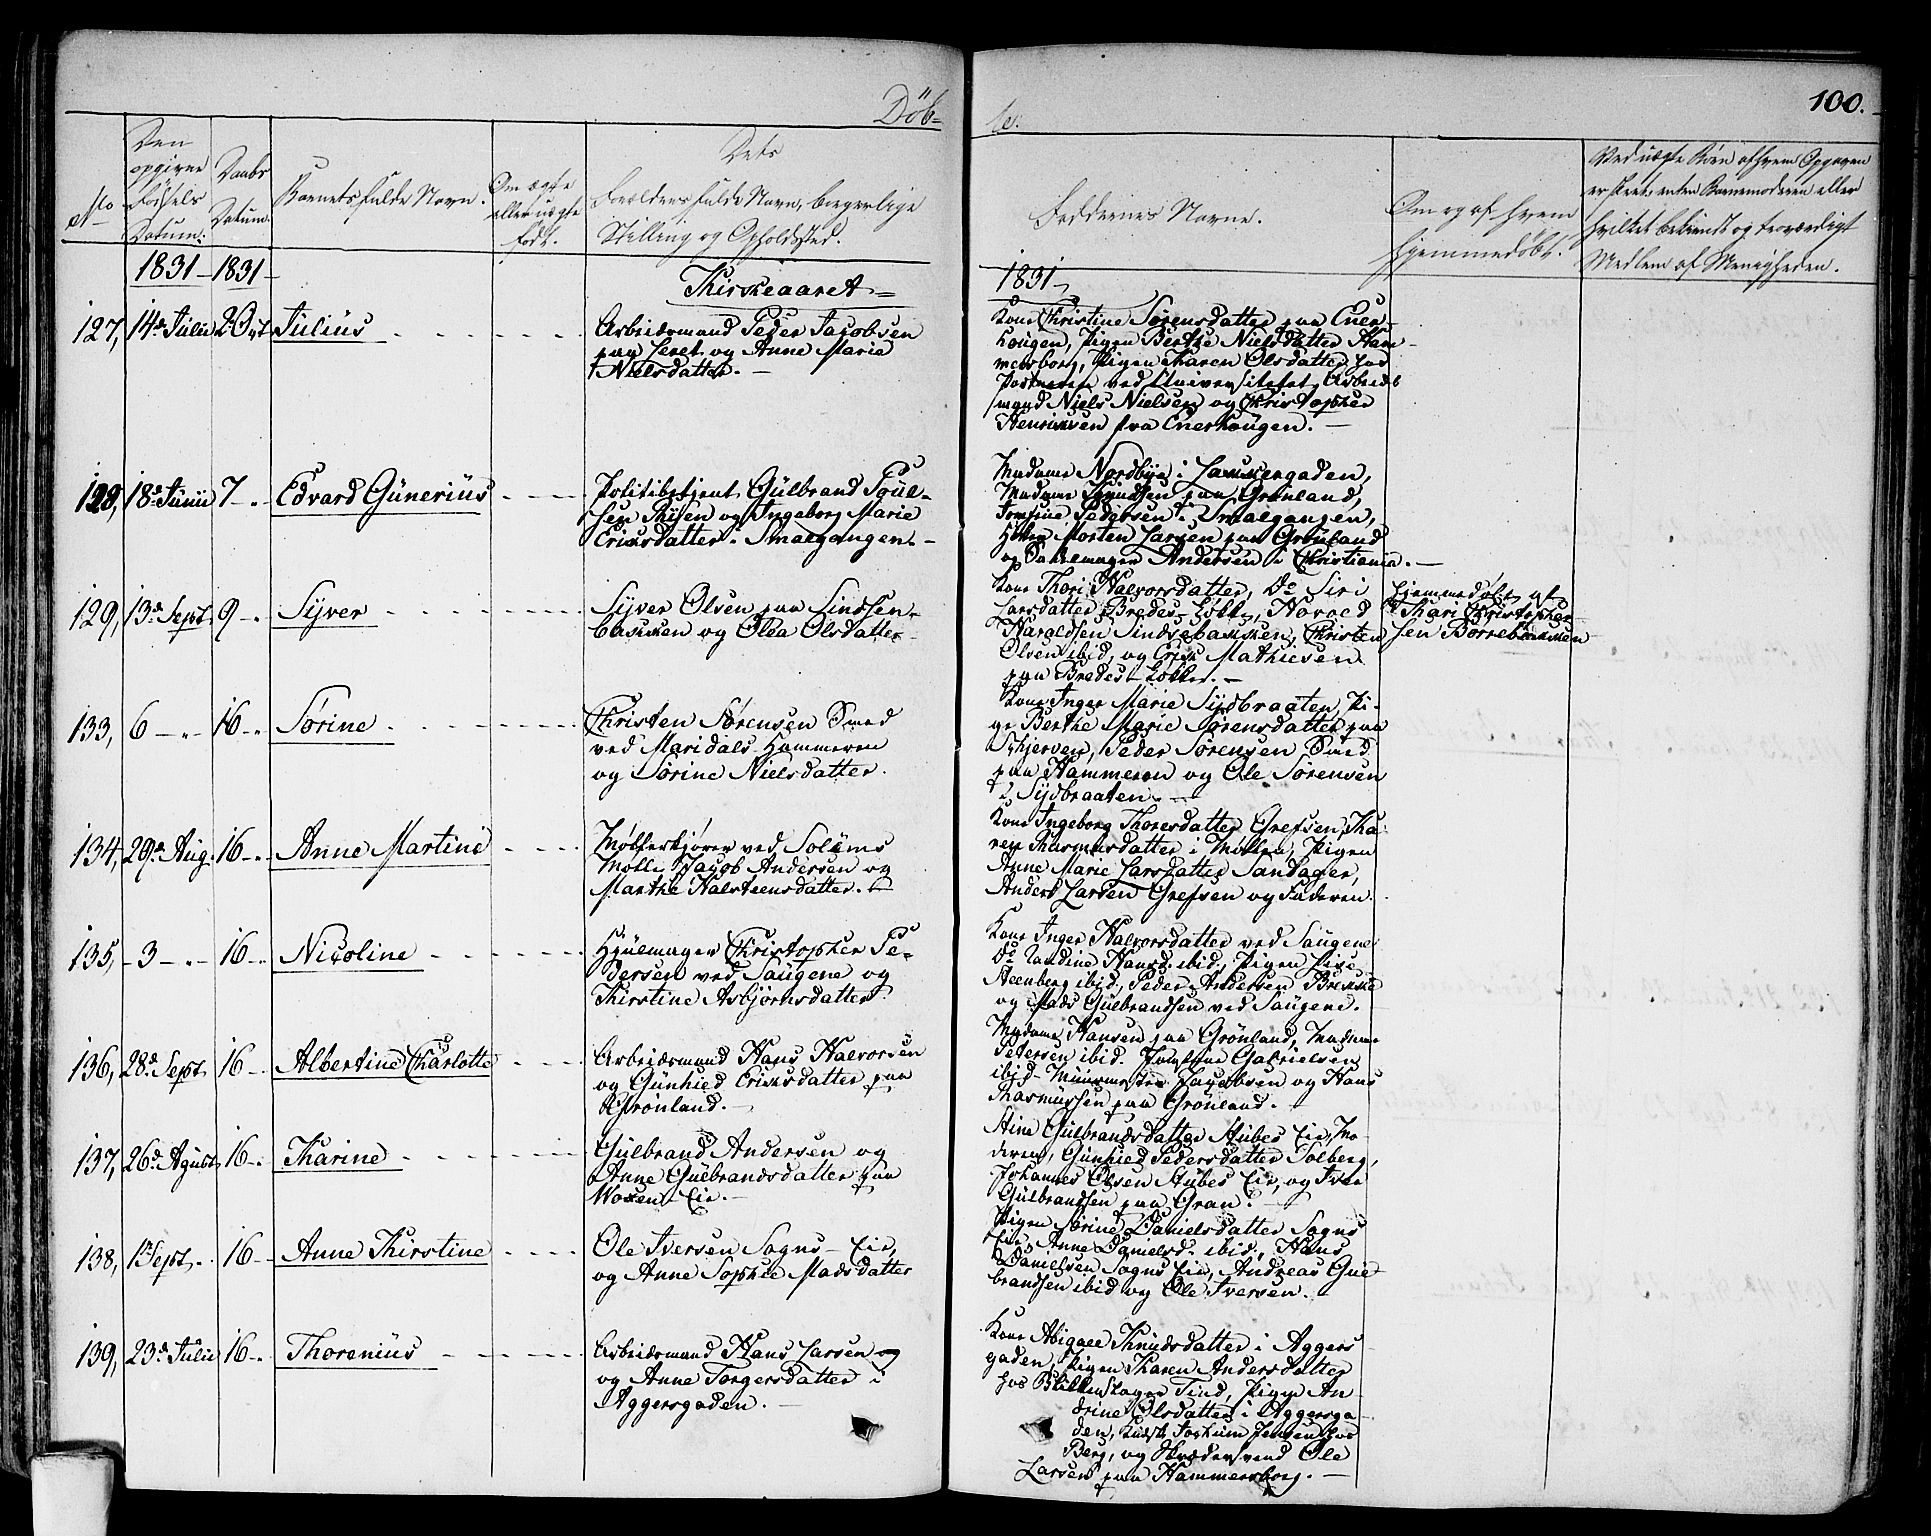 Döb-
te.
100.
No
Den opgivne Födsels Datum.
Daabs Datum.
Barnets fulde Navn.
Om ægte eller uægte födt.
Dets Forældres fulde Navn, borgerlige Stilling og Opholdssted.
Faddernes Navne.
Om og af hvem hjemmedöbt.
Ved uægte Börn af hvem Opgaven er skeet, enten Barnemoderen eller hvilket bekiendt og troværdigt Medlem af Menigheden.
1831 - 1831 -
Kirkeaaret
1831
127, 14de Julii 2 Oct Julius
Arbeidsmand Peder Jacobsen
paa Leret og Anne Marie
Nielsdatter. -
Kone Christine Sørensdatter paa Ener-
hougen, Pigen Berthe Nielsdatter Ham-
mersborg, Pigen Karen Olsdatter hos
ved Universitetet, Arbeids
mand Niels Nielsen og Christopher
Henriksen fra Enerhougen. -
128, 18de Junii 7 - Edvard Günerius
Politibetjent Gülbrand Poül-
sen Thisen og Ingeborg Marie
Ericksdatter i Smalgangen. -
Madame Nordbye i Lakkergaden,
Madame Knudsen paa Grønland,
Jomfrue Pedersen i Smalgangen,
Morten Larsen paa Grønland
og Sadelmager Andersen i Christiania. -
129, 13de Sept 9 - Syver
Syver Olsen paa Lindsen-
bakken og Olea Olsdatter -
Kone Thori Halvorsdatter, Do Siri
Larsdatter Bredes Løkke, Havoed
Haraldsen Lindsebakken, Christen
Olsen ibid, og Erik Mathiesen
paa Bredes Løkke. -
Hjemmedöbt af
Thari Christopher-
sen Borrebakken
133, 6 - " - 16 - Sørine
Christen Sørensen Smed
ved Maridals Hammeren
og Sørine Nielsdatter.
Kone Inger Marie Sydbraaten, Pi-
ge Berthe Marie Sørensdatter paa
Skjerven, Peder Sørensen Smed
paa Hammeren og Ole Sørensen
Sydbraaten. -
134, 29de Aug. 16 - Anne Martine
Møllerkjører ved Solüms
Mølle Jacob Andersen og
Marthe Halsteensdatter. -
Kone Ingeborg Thoresdatter Grefsen, Ka-
ren Rasmusdatter i Møllen, Pigen
Anne Marie Larsdatter Sandager,
Anders Larsen Grefsen og Faderen.
135, - 3 - " - 16 - Nicoline
Hjülmager Christopher Pe-
dersen ved Saugene og
Kirstine Asbjørnsdatter.
Kone Inger Halvorsdatter ved Saugene
Do Randine Hansd. ibid, Pigen Lise
Steenberg ibid, Peder Andersen Brekke
og Mads Gülbrandsen ved Saugene.
136, 28de Sept. 16 - Albertine Charlotte
Arbeidsmand Hans Halvorsen
og Günhild Ericksdatter paa
Grønland. -
Madame Hansen paa Grønland, Madame
Petersen ibid. Jomfrue Gabrielsen
ibid - Jacobsen og Hans
Rasmussen paa Grønland. -
137, 26de Agust 16 - Karine
Gülbrand Andersen og
Anne Gülbrandsdatter paa
Woxen Eie. -
Stine Gülbrandsdatter Stubes Eie, Mo-
deren, Günhild Pedersdatter Solberg,
Johannes Olsen Stübes Eie, og Iver
Gülbrandsen paa Gran.
138, 1 Sept. 16 - Anne Kirstine
Ole Iversen Sogns - Eie,
og Anne Sophie Madsdatter
Pigen Sørine Danielsdatter Sogns
Eie, Anne Danielsd. ibid, Hans
Danielsen Sogns Eie, Andreas Gul-
brandsen ibid og Ole Iversen.
139, 23de Julii 16 - Thorenius
Arbeidsmand Hans Larsen og
og Anne Torgersdatter i
Aggersgaden. -
Kone Abigael Knudsdatter i Aggers
gaden, Pigen Karen Andersdatter
hos Blikkenslager Lind, Pige An-
drine Olsdatter i Aggersga-
den, Kudsk Jochum Jensen hos
Berg, og Skræddersvend Ole
Larsen paa Hammersborg. -